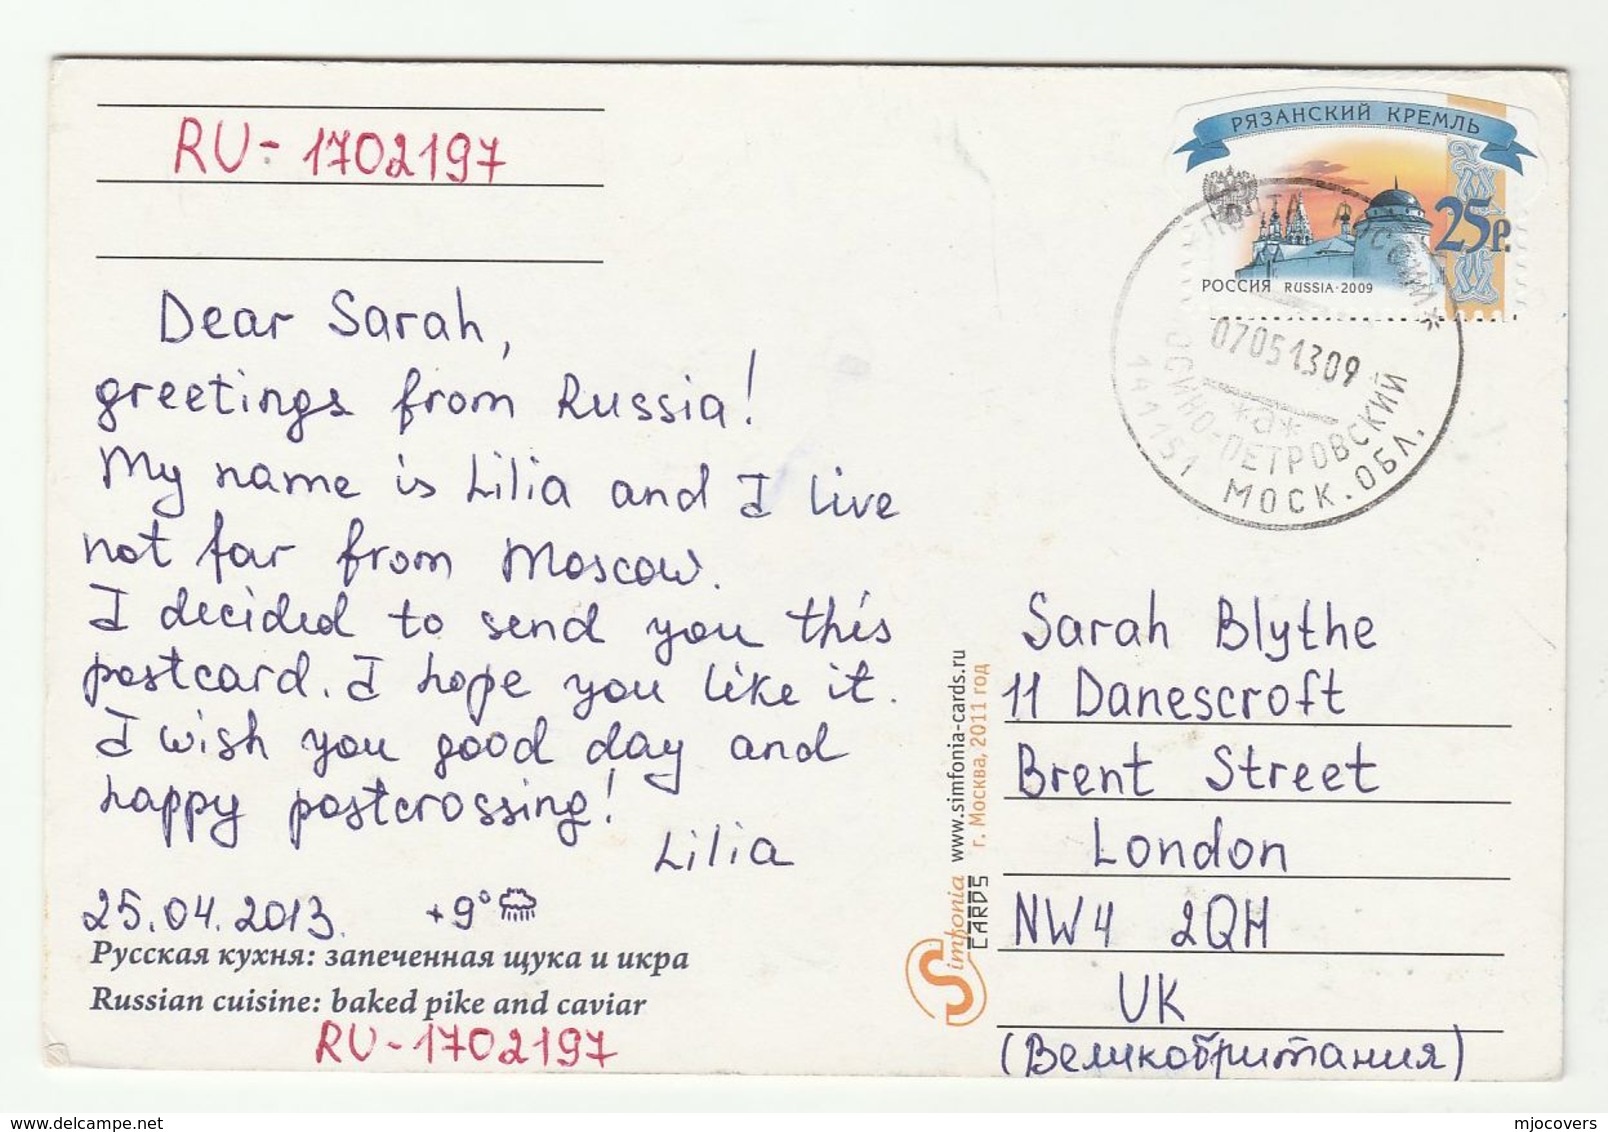 RU-1702197
Dear Sarah,
greetings from Russia!
My name is Lilia and I live
not far from Moscow.
I decided to send you this
postcard. I hope you like it.
I wish you good day and
happy postcrossing!
Lilia
25.04.2013. +9°
Русская кухня: запеченная щука и икра
Russian cuisine: baked pike and caviar
RU-1702197
Simfonia CARDS www.simfonia-cards.ru
г. Москва, 2011 год
РЯЗАНСКИЙ КРЕМЛЬ
25р.
РОССИЯ RUSSIA·2009
ПОЧТА РОССИИ *
07051309
*а*
ОСИНО-ПЕТРОВСКИЙ
141151 МОСК. ОБЛ.
Sarah Blythe
11 Danescroft
Brent Street
London
NW4 2QH
UK
(Великобритания)
delcampe.net
mjocovers